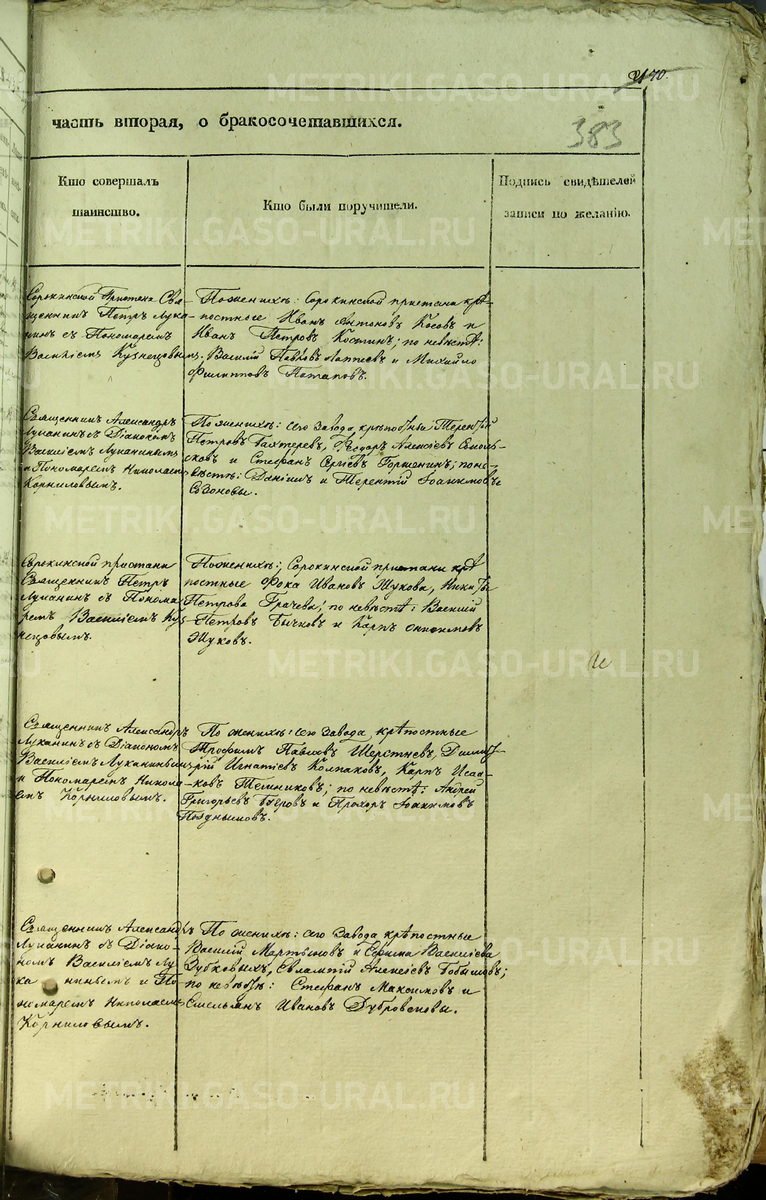 часть вторая, о бракосочетавшихся.
383
Кто совершалъ
таинство.
Кто были поручители.
Подпись свидѣтелей
записи по желанію.
Сорокинской Пристани Свя-
щенникъ Петръ Лука-
нинъ съ Пономаремъ
Василіемъ Кузнецовымъ.
По женихѣ: Сорокинской пристани крѣ-
постные Иванъ Антоновъ Косовъ и
Иванъ Петровъ Костинъ; по невѣстѣ:
Василій Павловъ Лаптевъ и Михайло
Филипповъ Потаповъ.
Священникъ Александръ
Луканинъ съ Діакономъ
Василіемъ Луканинымъ
и Пономаремъ Николаемъ
Корниловымъ.
По женихѣ: сего завода крѣпостные Терентій
Петровъ Бахтеревъ, Ѳедоръ Алексѣев
и Стефанъ Сергѣевъ по не-
вѣстѣ: Даніилъ и Терентій Іоакимовы
Сазоновы.
Сорокинской пристани
Священникъ Петръ
Луканинъ съ Понома
ремъ Василіемъ Куз
нецовымъ.
По женихѣ: Сорокинской пристани крѣ
постные Фока Ивановъ Жукова, Никита
Петрова Грачева; по невѣстѣ: Василій
Петровъ Бычковъ и Карпъ Онисимовъ
Жуковъ.
Священникъ Александръ
Луканинъ съ Діакономъ
Василіемъ Луканинымъ
и Пономаремъ Никола
емъ Корниловымъ.
По женихѣ: сего завода крѣпостные
Трофимъ Павловъ Шерстневъ, Димит-
рій Игнатіевъ Колпаковъ, Карпъ Исаа-
ковъ Темниковъ; по невѣстѣ: Андрей
Григорьевъ и Прохоръ Іоакимовъ
Поздныховъ.
Священникъ Александръ
Луканинъ съ Діако-
номъ Василіемъ Лу
канинымъ и По
номаремъ Николаемъ
Корниловымъ.
По женихѣ: сего завода крѣпостные
Василій Мартыновъ и Васильева
Зубковыхъ, Евлампій Алексѣевъ
по невѣстѣ: Стефанъ Максимовъ и
Емельянъ Ивановъ Дубровсковы.
METRIKI.GASO-URAL.RU